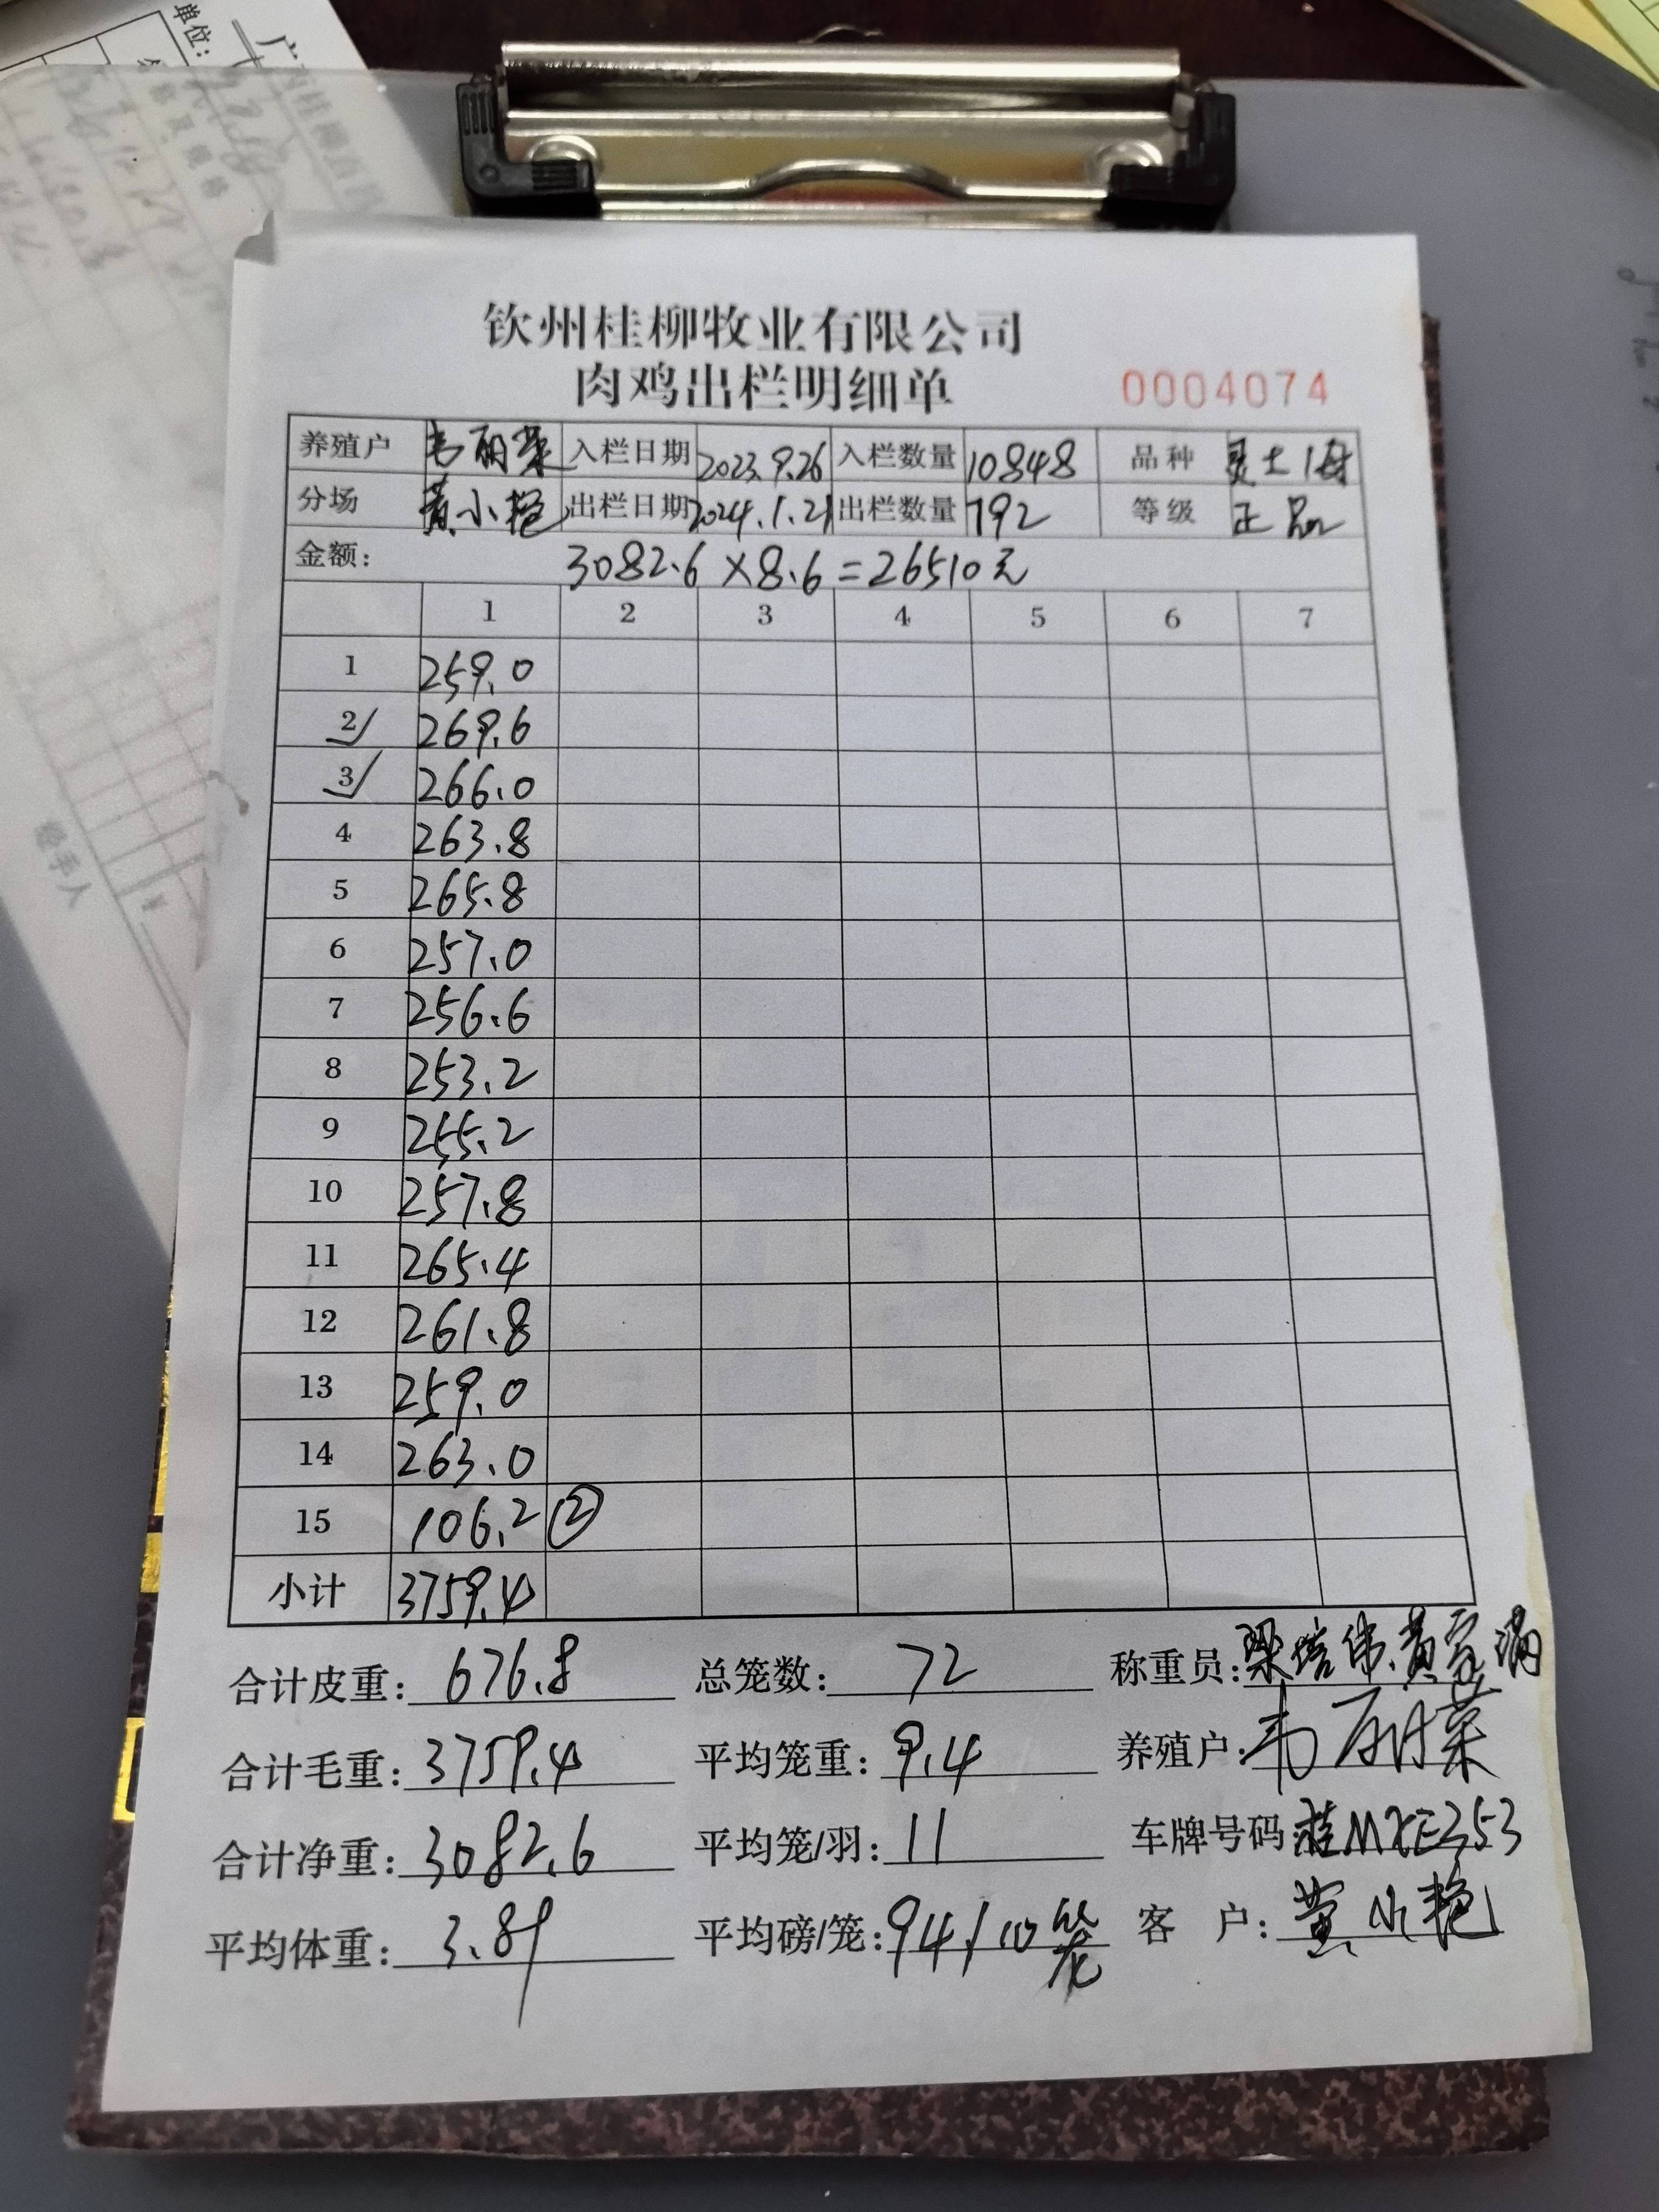 钦州桂柳牧业有限公司
肉鸡出栏明细单 0004074
养殖户 韦丽荣 入栏日期 2023.9.26 入栏数量 10848 品种 灵土1母
分场 黄小艳 出栏日期 2024.1.21 出栏数量 792 等级 正品
金额: 3082.6×8.6=26510元
1 2 3 4 5 6 7
1 259.0
2 269.6
3 266.0
4 263.8
5 265.8
6 257.0
7 256.6
8 253.2
9 255.2
10 257.8
11 265.4
12 261.8
13 259.0
14 263.0
15 106.2 ②
小计 3759.4
合计皮重: 676.8 总笼数: 72 称重员: 梁培伟.黄
合计毛重: 3759.4 平均笼重: 9.4 养殖户: 韦丽荣
合计净重: 3082.6 平均笼/羽: 11 车牌号码 桂MXE353
平均体重: 3.89 平均磅/笼: 94/10笼 客 户: 黄小艳
单位:
经手人